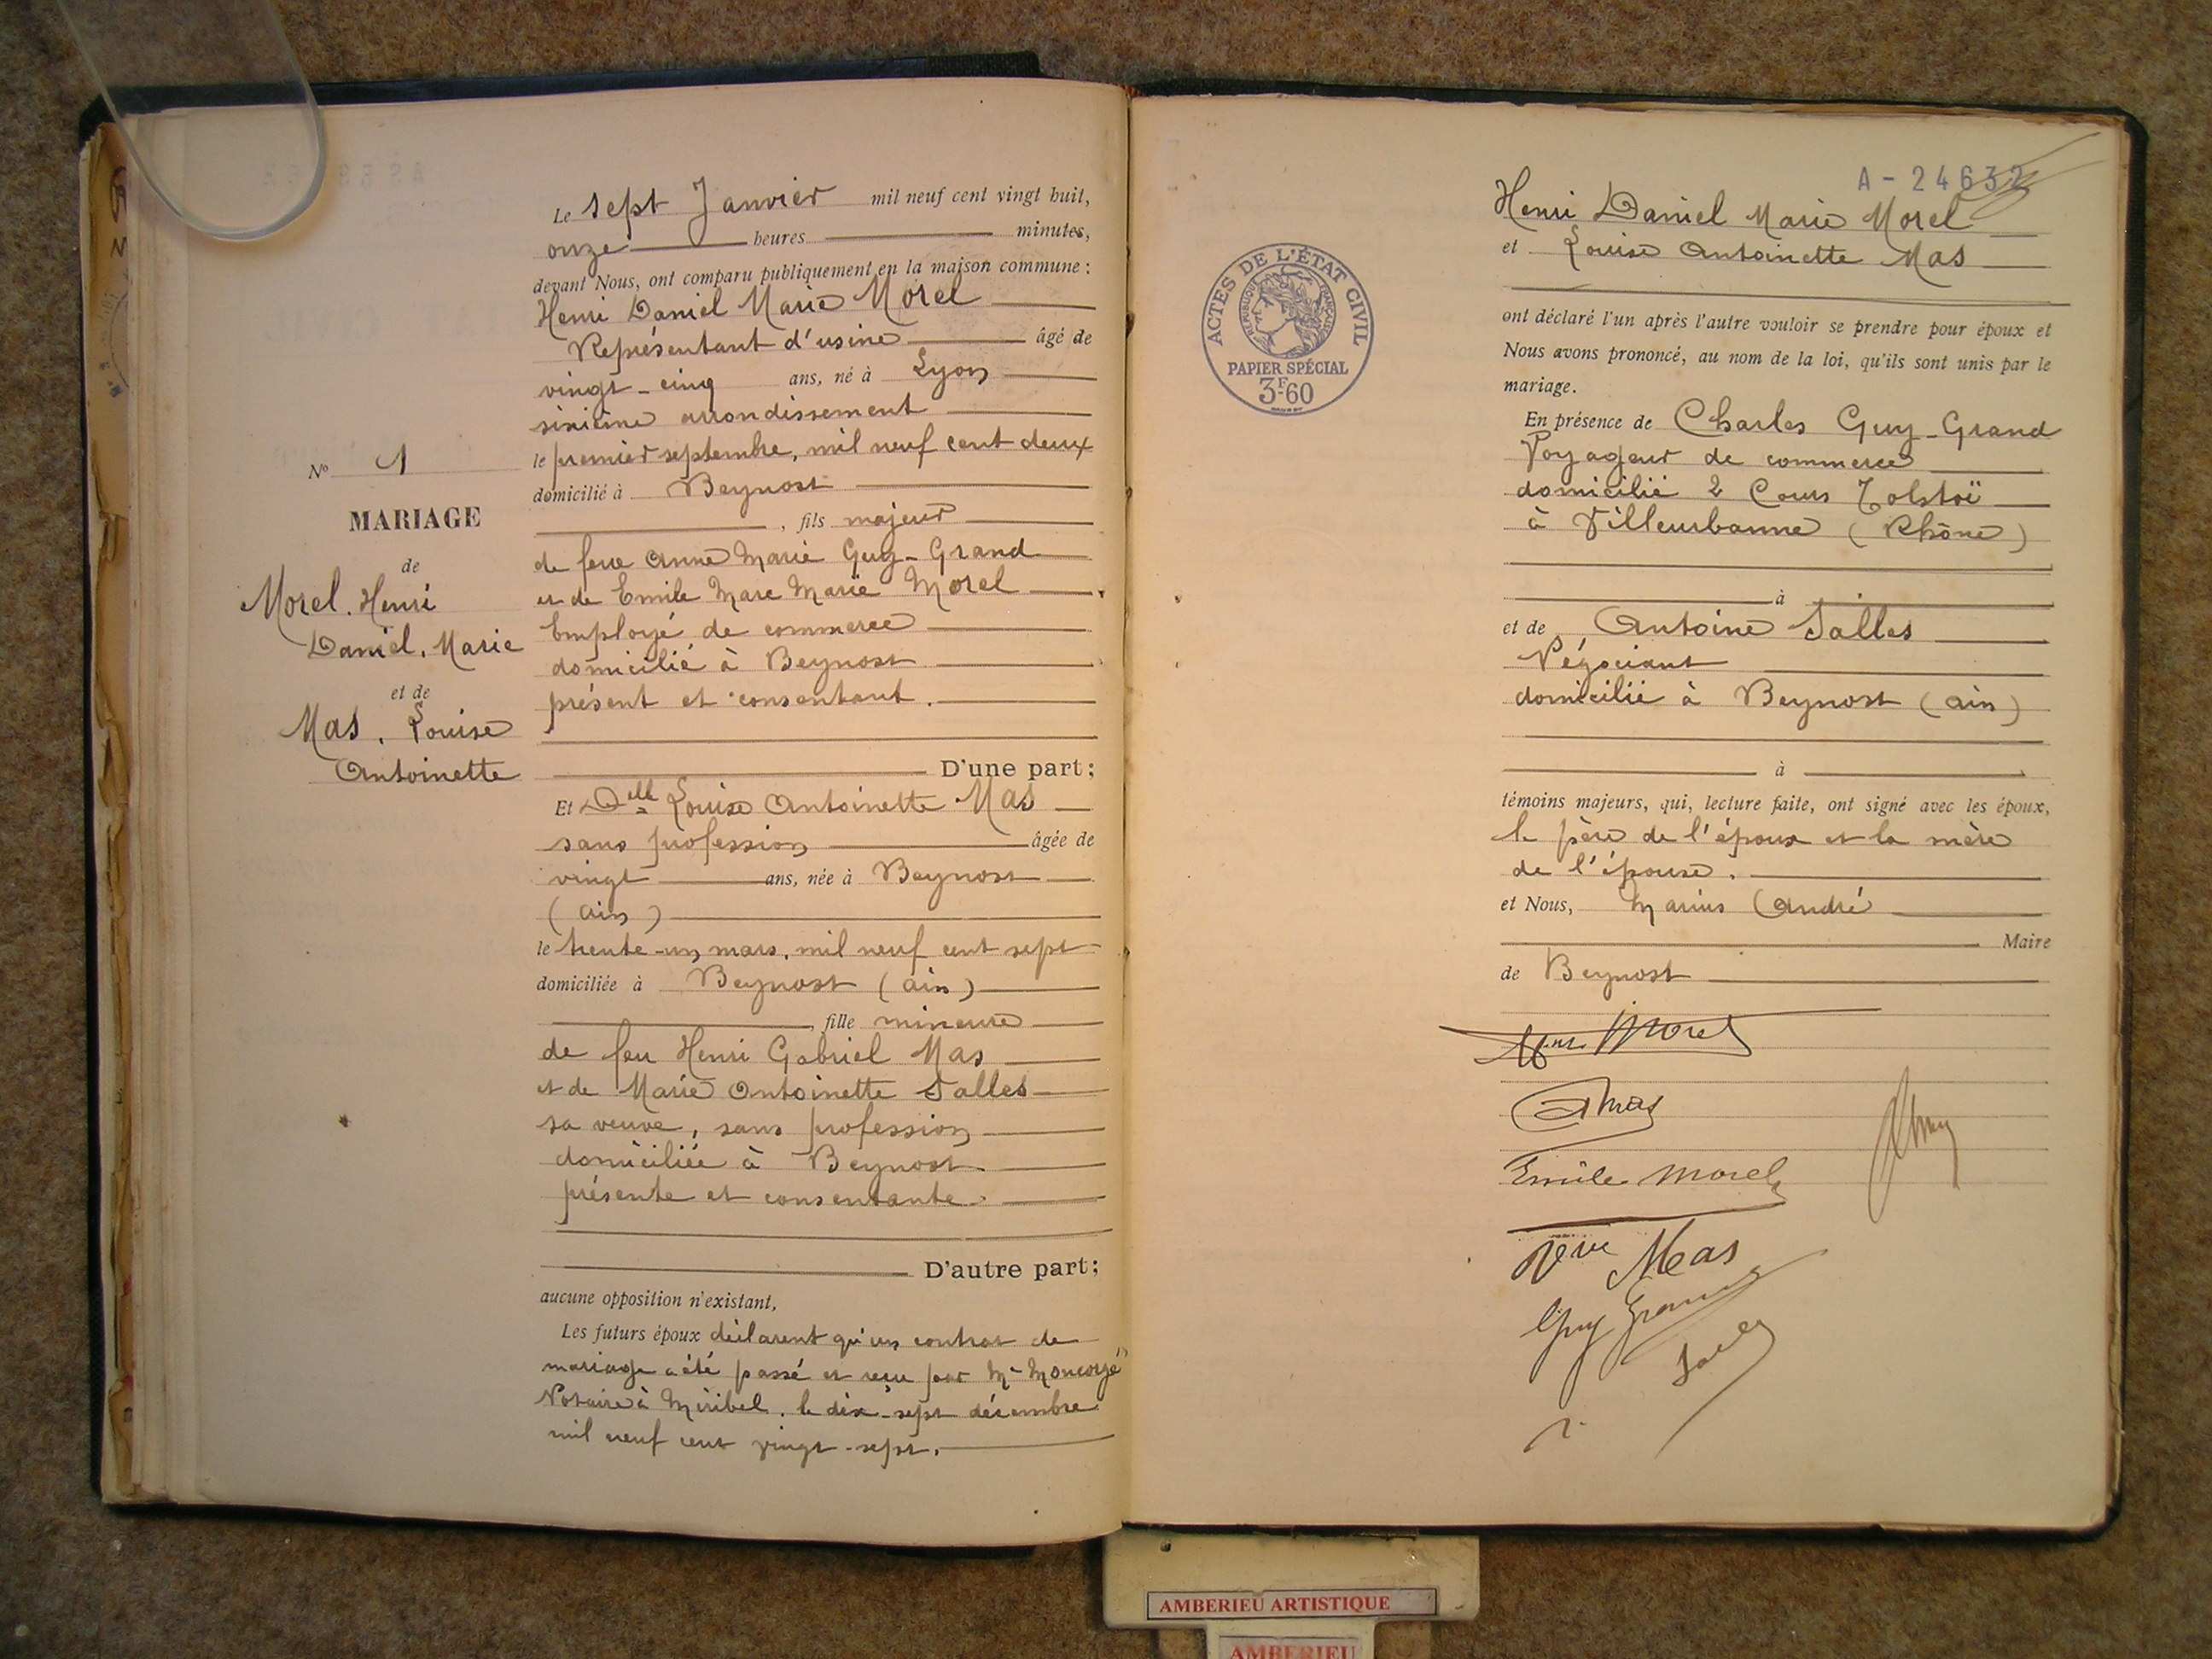 Le sept Janvier mil neuf cent vingt huit,
onze heures minutes,
devant Nous, ont comparu publiquement en la maison commune :
Henri Daniel Marie Morel
Représentant d'usine âgé de
vingt-cinq ans, né à Lyon
sixième arrondissement
le premier septembre, mil neuf cent deux
domicilié à Beynost
, fils majeur
de feue Anne Marie Guy-Grand
et de Emile Marc Marie Morel
Employé de commerce
domicilié à Beynost
présent et consentant.
D'une part ;
Et Delle Louise Antoinette Mas
sans profession âgée de
vingt ans, née à Beynost
(Ain)
le trente-un mars, mil neuf cent sept
domiciliée à Beynost (Ain)
, fille mineure
de feu Henri Gabriel Mas
et de Marie Antoinette Salles
sa veuve, sans profession
domiciliée à Beynost.
présente et consentante.
D'autre part ;
aucune opposition n'existant,
Les futurs époux déclarent qu'un contrat de
mariage a été passé et reçu par Me Moncorgé
Notaire à Miribel, le dix-sept décembre
mil neuf cent vingt-sept.
No 1
MARIAGE
de
Morel. Henri
Daniel. Marie
et de
Mas. Louise
Antoinette
A-24632
Henri Daniel Marie Morel
et Louise Antoinette Mas
ont déclaré l'un après l'autre vouloir se prendre pour époux et
Nous avons prononcé, au nom de la loi, qu'ils sont unis par le
mariage.
En présence de Charles Guy-Grand
Voyageur de commerce
domicilié 2 Cours Tolstoï
à Villeurbanne (Rhône)
à
et de Antoine Salles
Négociant
domicilié à Beynost (Ain)
à
témoins majeurs, qui, lecture faite, ont signé avec les époux,
le père de l'époux et la mère
de l'épouse.
et Nous, Marius André
Maire
de Beynost
Morel
Mas
Emile Morel
Vve Mas
Guy Grand
ACTES DE L'ÉTAT CIVIL
RÉPUBLIQUE FRANÇAISE
PAPIER SPÉCIAL
3F60
AMBERIEU ARTISTIQUE
AMBERIEU